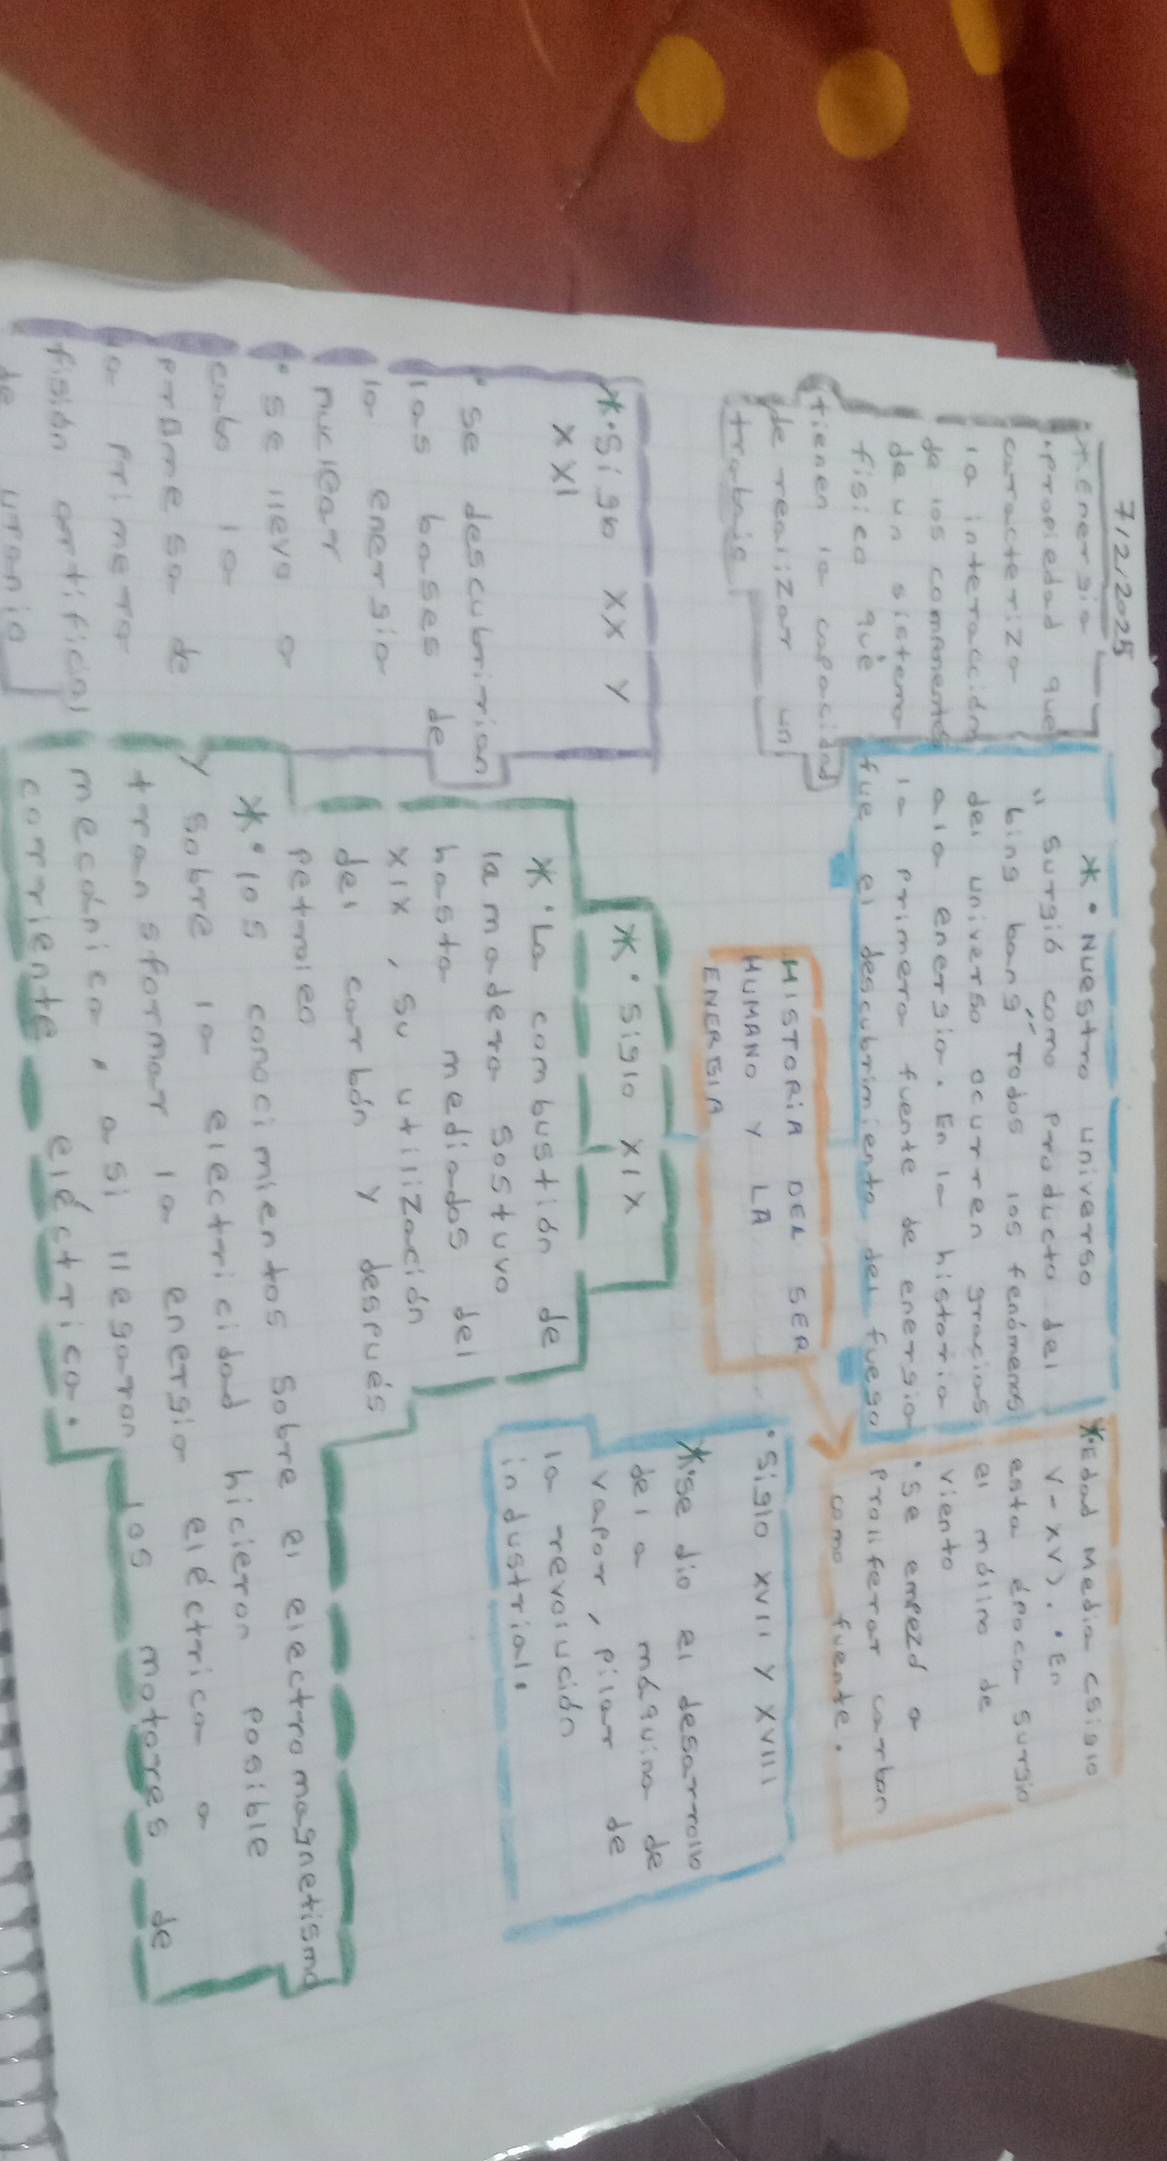 7/2/2025
*Energia
•propiedad que
caracteriza
la interacción
de los componentes
de un sistema
físico què
tienen la capacidad
de realizar un
trabajo
*•Nuestro universo
"surgió como producto del
bing bang" Todos los fenómenos
del universo ocurren gracias
a la energia. En la historia
la primera fuente de energia
fue el descubrimiento del fuego
*Edad Media (siglo
V-XV).•En
esta época surgio
el mólino de
viento
•se empezó a
proliferar carbon
como fuente.
HISTORIA DEL SER
HUMANO Y LA
ENERGIA
•Siglo XVII Y XVIII
*•se dio el desarrollo
del a máquina de
vapor, pilar de
la revolución
industrial.
*•Siglo XIX
*•La combustión de
la madera sostuvo
hasta mediados del
XIX, su utilización
del carbón y después
petroleo
*•los conocimientos sobre el electromagnetismo
y sobre la electricidad hicieron posible
transformar la energia eléctrica a
mecánica, asi llegaron los motores de
corriente eléctrica.
*•Siglo XX Y
XXI
•se descubririan
las bases de
la energia
nuclear
•se llevo a
cabo la
promesa de
a primera
fisión artificial
de uranio